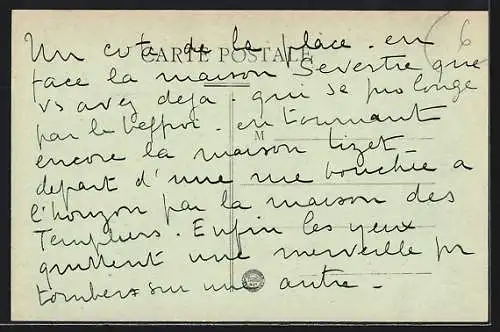 Un coté de la place. en
CARTE POSTALE
face la maison Sevestre que
vs avez deja. qui se prolonge
par le beffroi. en tournant
M
encore la maison Lizet
depart d'une rue bouchée a
l'horizon par la maison des
Templiers. Enfin les yeux
quittent une merveille pr
tomber sur une autre -
6